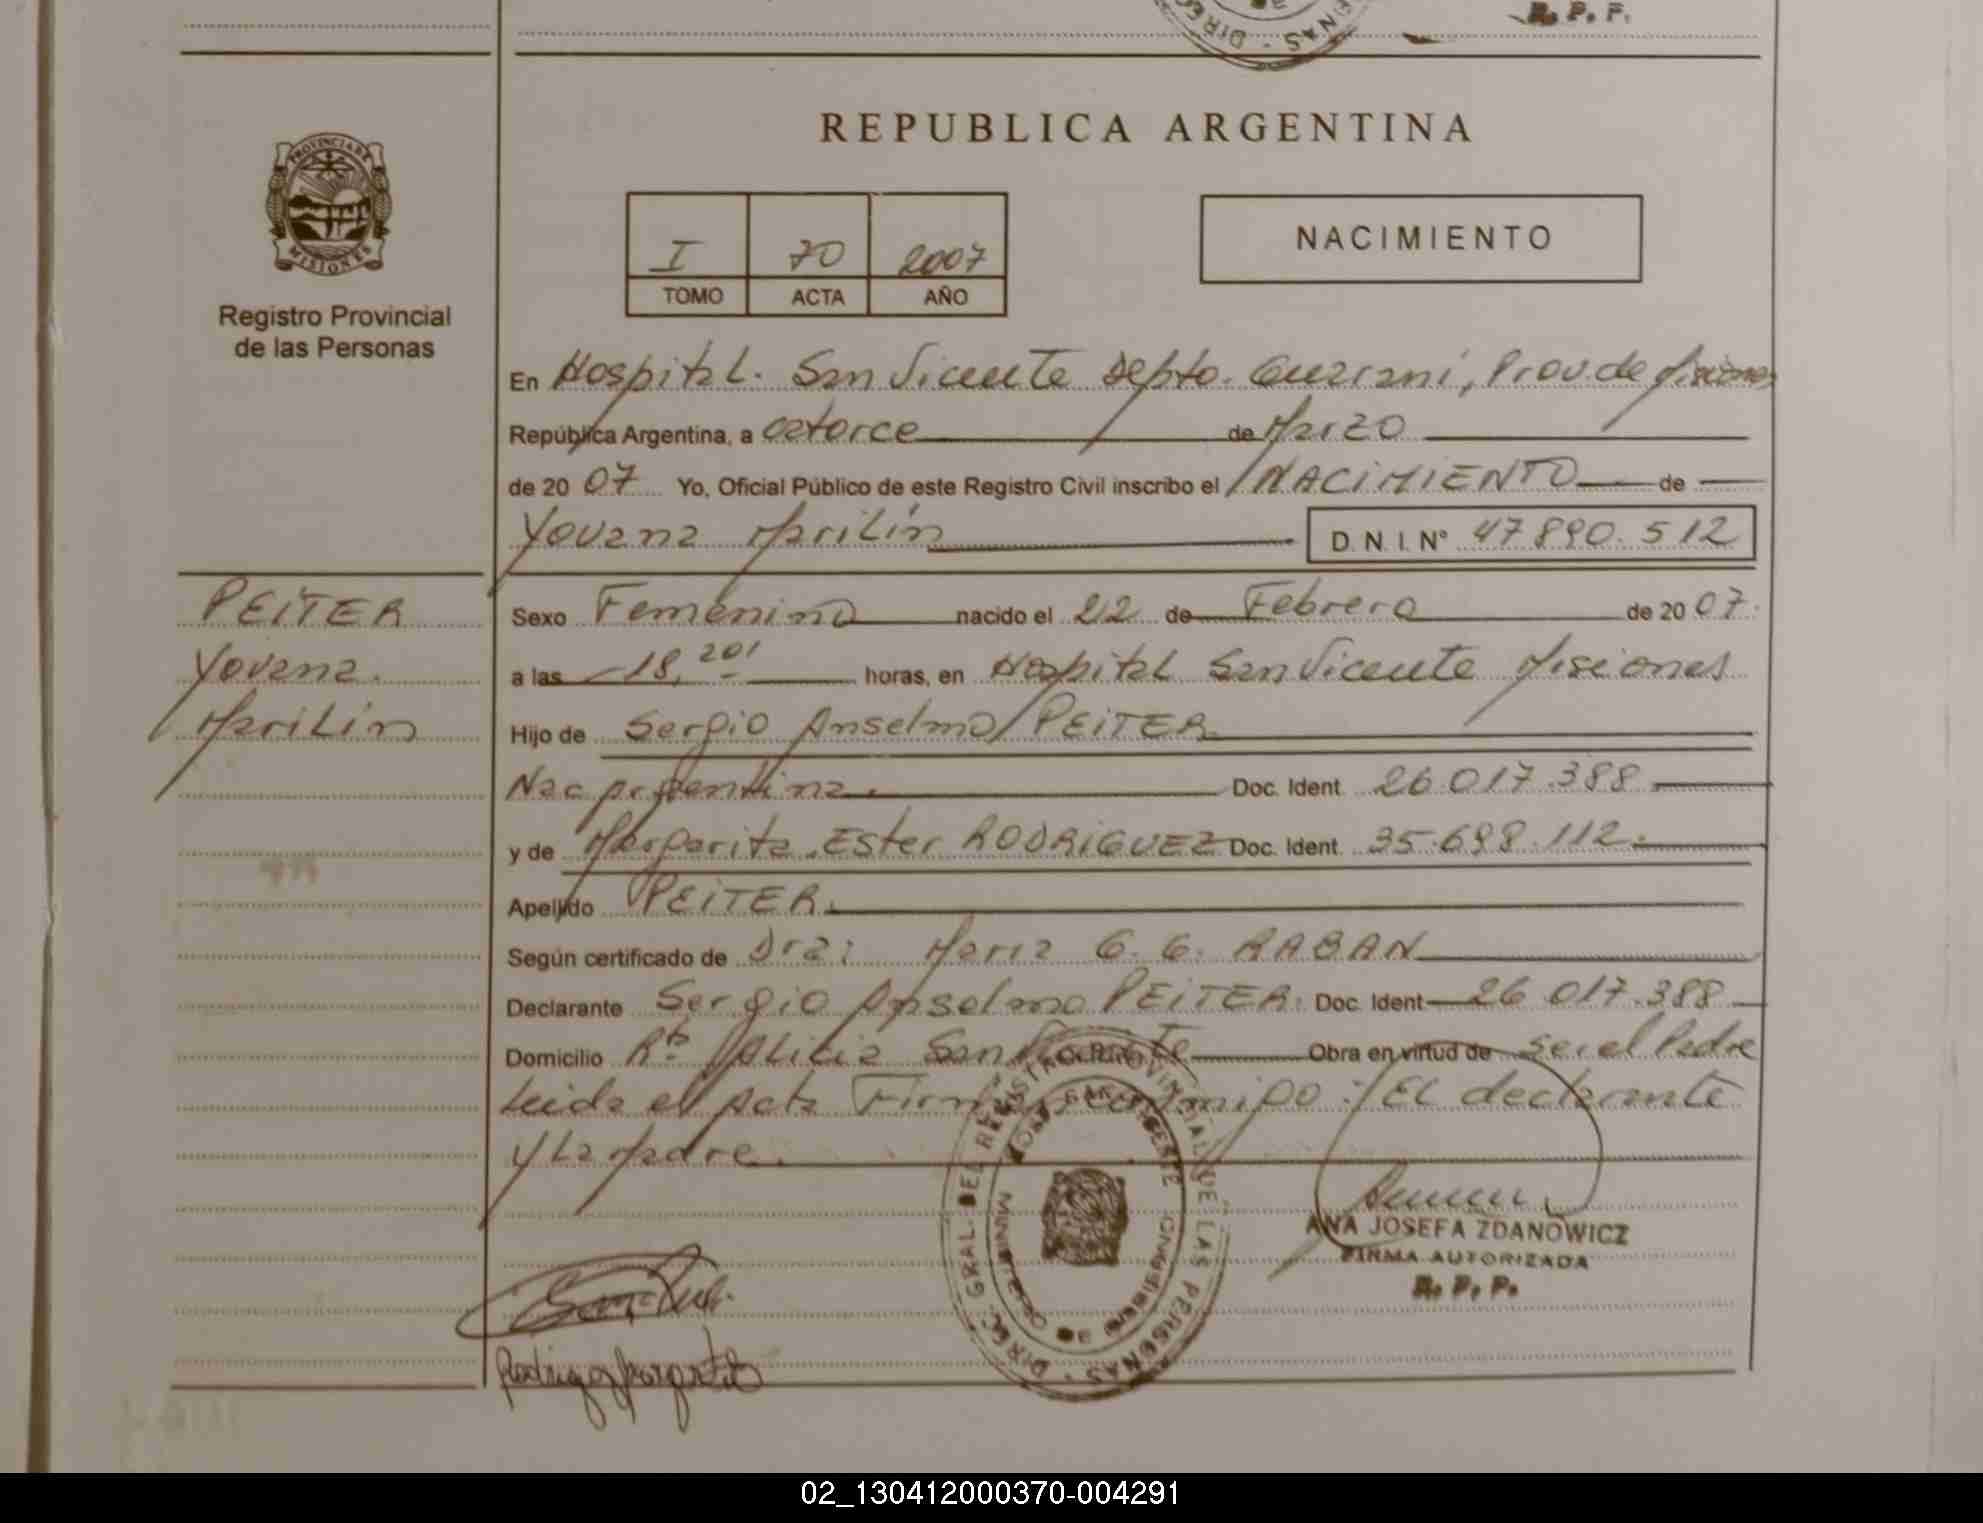 R. P. F.
REPUBLICA ARGENTINA
PROVINCIA DE
MISIONES
Registro Provincial
de las Personas
I 70 2007
TOMO ACTA AÑO
NACIMIENTO
En Hospital. San Vicente Depto. Guarani, Prov. de Misiones
República Argentina, a catorce de Marzo
de 20 07 Yo, Oficial Público de este Registro Civil inscribo el NACIMIENTO de
Yovana Marilín D. N. I. N° 47890.512
PEITER
Yovana.
Marilín
Sexo Femenino nacido el 22 de Febrero de 20 07.
a las 18, 20' horas, en Hospital San Vicente Misiones
Hijo de Sergio Anselmo PEITER
Nac Argentina. Doc. Ident. 26.017.388
y de Margarita Ester RODRIGUEZ Doc. Ident. 35.698.112.
Apellido PEITER.
Según certificado de Dra: Maria G. G. RABAN
Declarante Sergio Anselmo PEITER. Doc. Ident 26.017.388
Domicilio Alicia San Vicente Obra en virtud de ser el Padre
Leida el Acta Firman conmigo: El declarante
y La Madre.
DIREC. GRAL. DEL REGISTRO PROVINCIAL DE LAS PERSONAS
ANA JOSEFA ZDANOWICZ
FIRMA AUTORIZADA
R. P. P.
Rodriguez Margarita
02_130412000370-004291